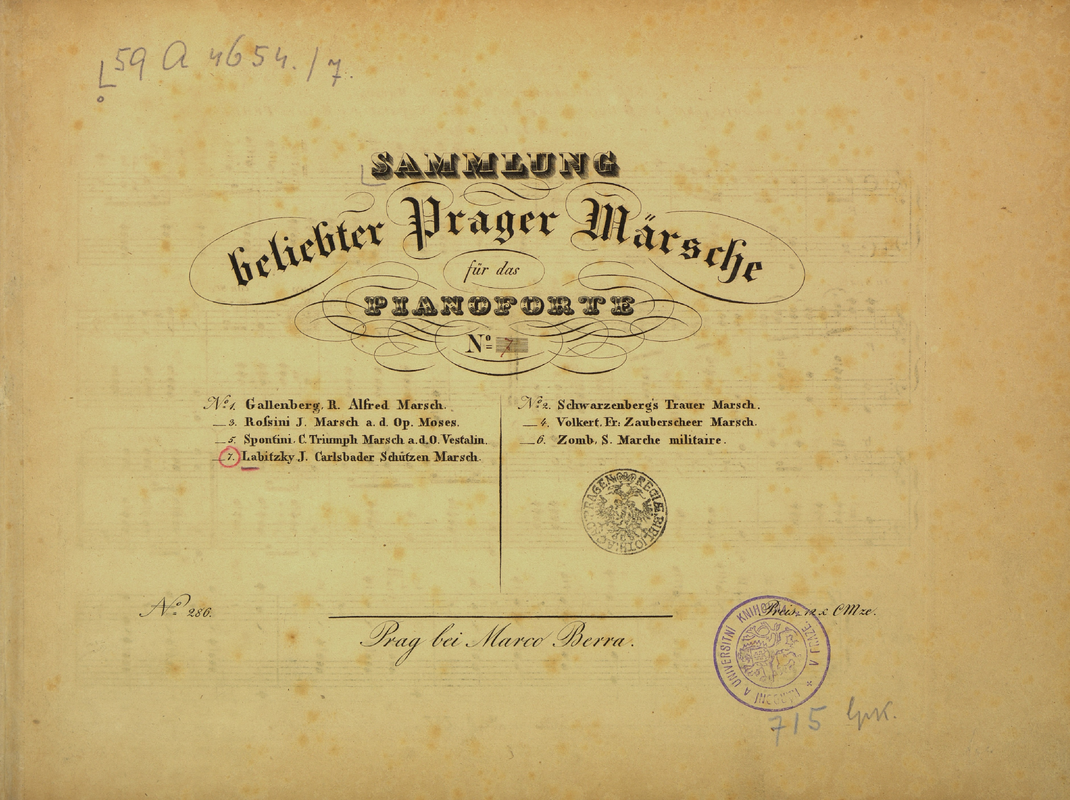 59 A 4654./7.
SAMMLUNG
beliebter Prager Märsche
für das
PIANOFORTE
No. 7
No. 1. Gallenberg, R. Alfred Marsch.
3. Roſsini J. Marsch a. d. Op. Moses.
5. Spontini, C. Triumph Marsch a. d. O. Vestalin.
7. Labitzky J. Carlsbader Schützen Marsch.
No. 2. Schwarzenberg's Trauer Marsch.
4. Volkert, Fr: Zauberscheer Marsch.
6. Zomb, S. Marche militaire.
No. 286.
Preis 12 x CMze.
Prag bei Marco Berra.
A UNIVERSITNÍ KNIHOVNA V PRAZE
715